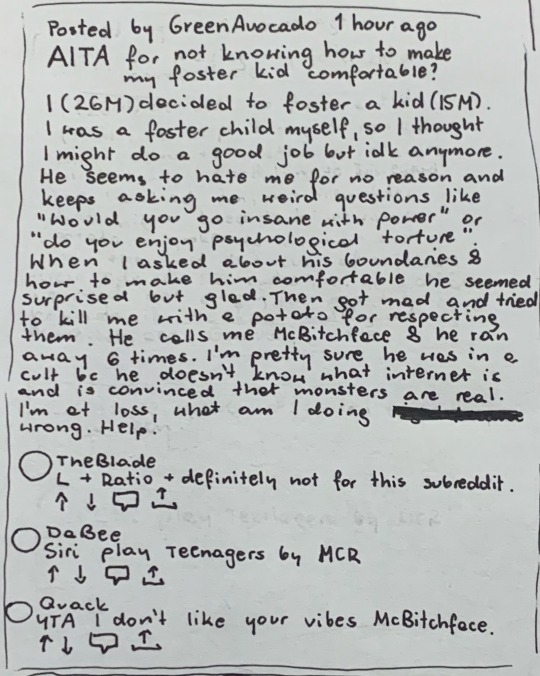 Posted by GreenAvocado 1 hour ago
AITA for not knowing how to make
my foster kid comfortable?
I (26M) decided to foster a kid (15M).
I was a foster child myself, so I thought
I might do a good job but idk anymore.
He seems to hate me for no reason and
keeps asking me weird questions like
"Would you go insane with power" or
"do you enjoy psychological torture".
When I asked about his boundaries &
how to make him comfortable he seemed
surprised but glad. Then got mad and tried
to kill me with a potato for respecting
them. He calls me McBitchface & he ran
away 6 times. I'm pretty sure he was in a
cult bc he doesn't know what internet is
and is convinced that monsters are real.
I'm at loss, what am I doing
wrong. Help.
TheBlade
L + Ratio + definitely not for this subreddit.
DaBee
Siri play Teenagers by MCR
Quack
YTA I don't like your vibes McBitchface.